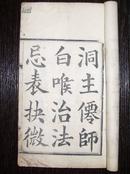 洞主僊師
白喉治法
忌表抉微